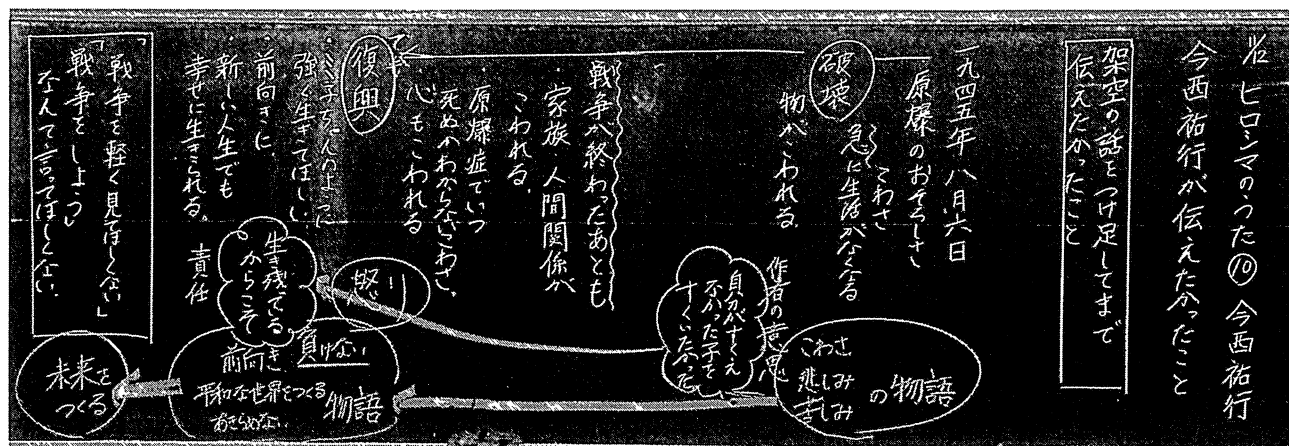 11/2 ヒロシマのうた⑩ 今西祐行
今西祐行が伝えたかったこと
架空の話をつけ足してまで
伝えたかったこと
一九四五年八月六日
原爆のおそろしさ
こわさ
破壊
急に生活がなくなる
物がこわれる
戦争が終わったあとも
・家族・人間関係が
こわれる。
・原爆症でいつ
死ぬかわからないこわさ。
・心もこわれる
復興
・ミ子ちゃんのように
強く生きてほしい
前向きに
新しい人生でも
幸せに生きられる。
責任
「戦争を軽く見てほしくない」
「戦争をしよう」
なんて言ってほしくない。
作者の意思
自分がすくえ
なかった子を
すくいたかった
怒り
生き残ってる
からこそ
こわさ
悲しみ
苦しみ
の物語
負けない
前向き
平和な世界をつくる
あきらめない
物語
未来を
つくる